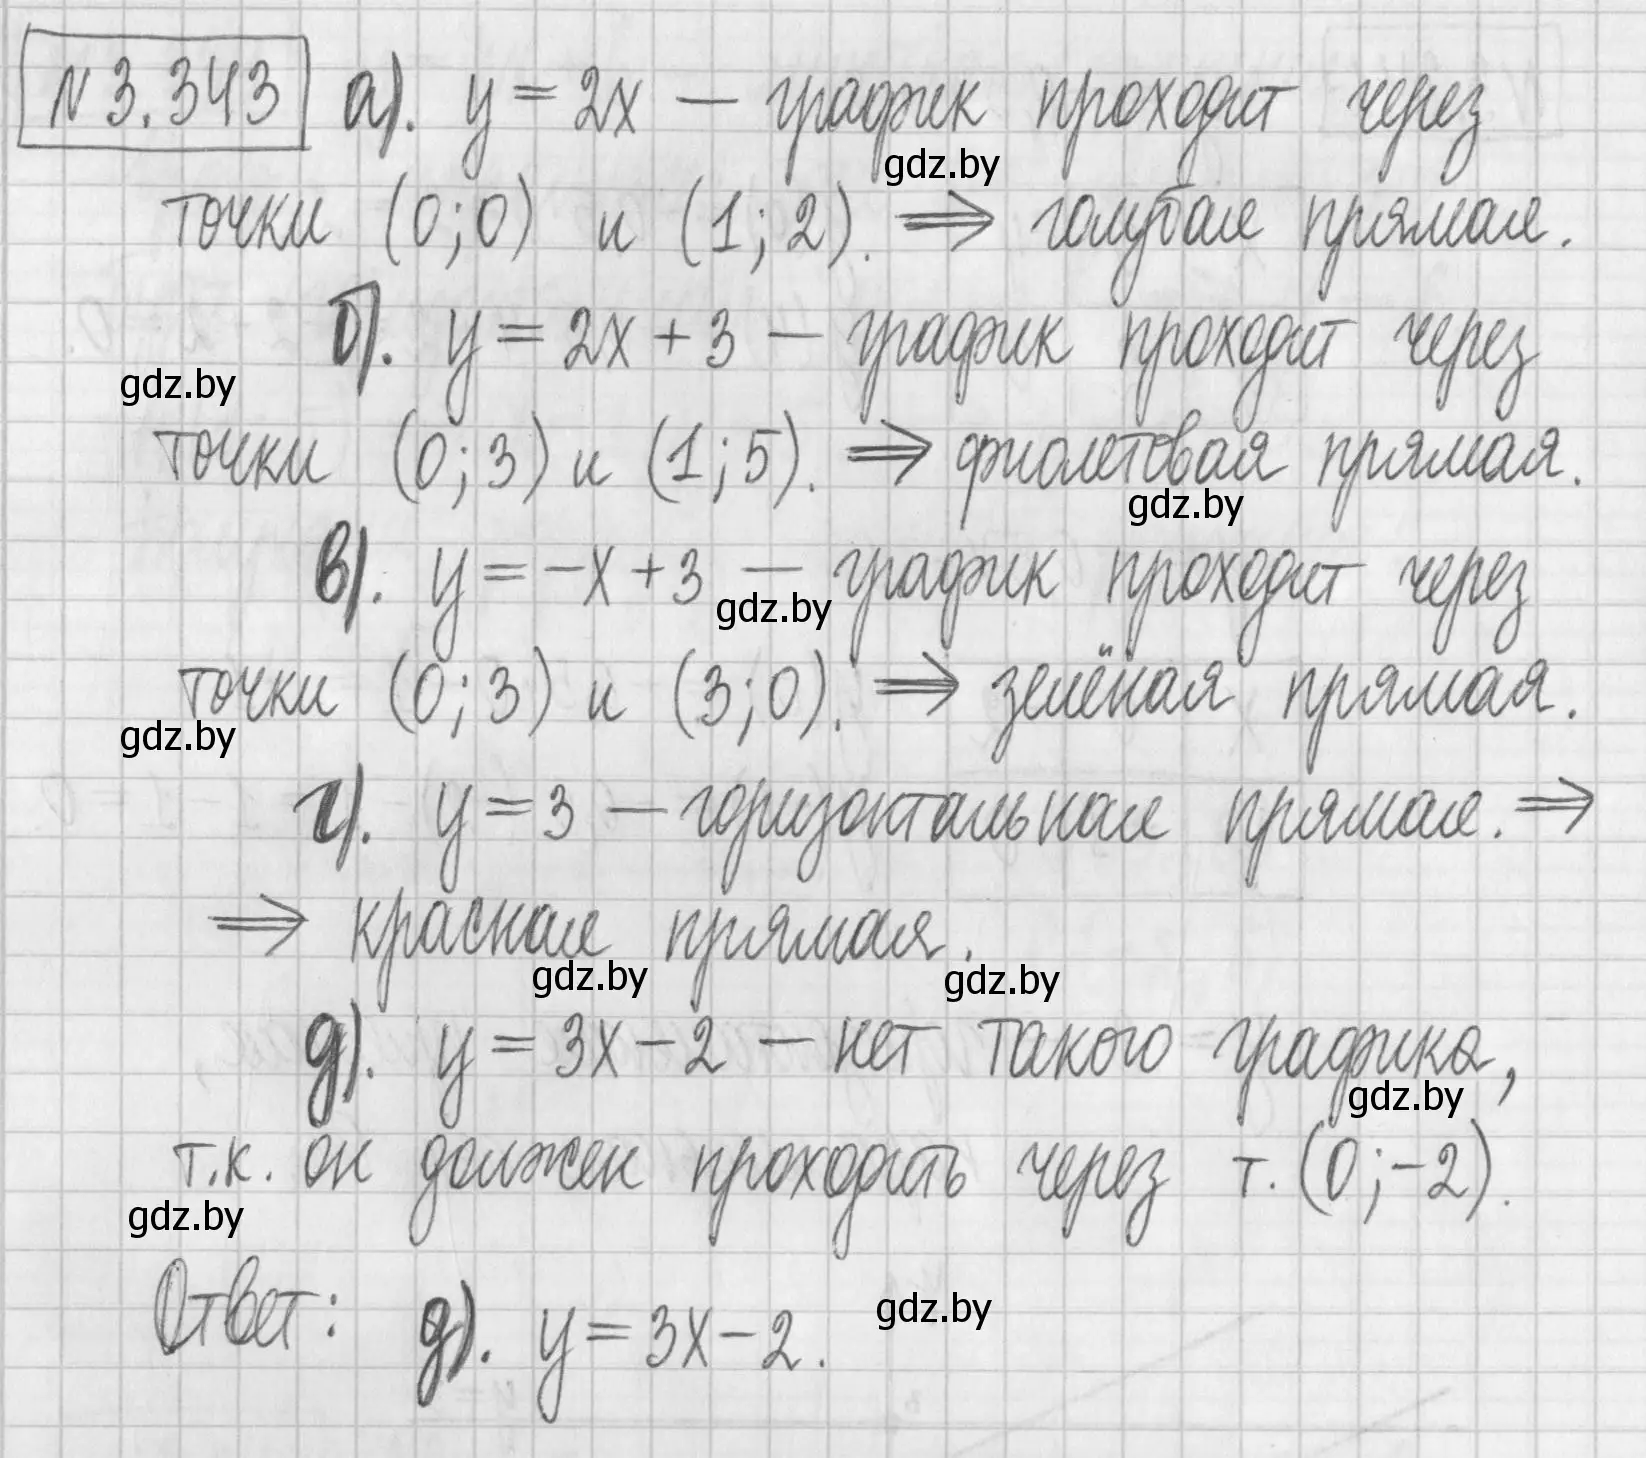 № 3.343 а). y = 2x — график проходит через
gdz.by
точки (0;0) и (1;2). ⟹ голубая прямая.
б). y = 2x + 3 — график проходит через
gdz.by
точки (0;3) и (1;5). ⟹ фиолетовая прямая.
gdz.by
в). y = -x + 3 — график проходит через
gdz.by
точки (0;3) и (3;0). ⟹ зелёная прямая.
gdz.by
г). y = 3 — горизонтальная прямая. ⟹
⟹ красная прямая.
gdz.by gdz.by
д). y = 3x - 2 — нет такого графика,
gdz.by
т.к. он должен проходить через т. (0;-2).
gdz.by
gdz.by
Ответ: д). y = 3x - 2.